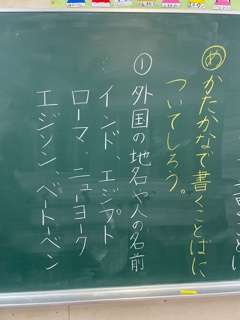 めかたかなで書くことばに
ついてしろう。
①外国の地名や人の名前
インド、エジプト
ローマ、ニューヨーク
エジソン、ベートーベン